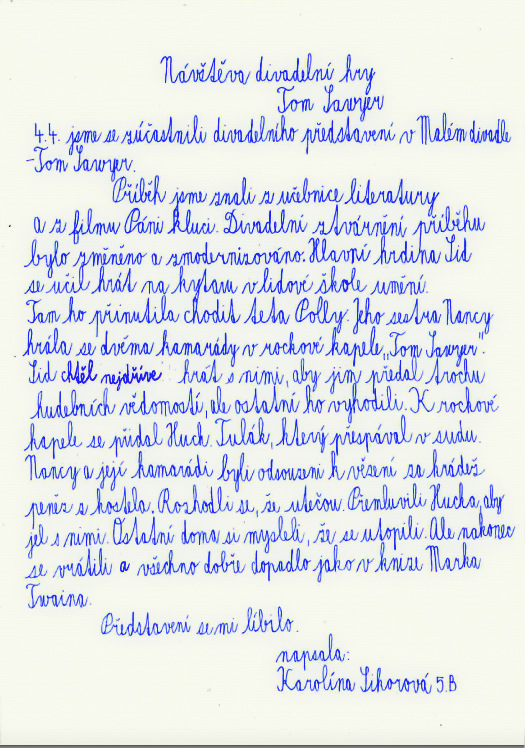 Návštěva divadelní hry
Tom Sawyer
4.4. jsme se zúčastnili divadelního představení v Malém divadle
-Tom Sawyer.
Příběh jsme znali z učebnice literatury
a z filmu Páni kluci. Divadelní ztvárnění příběhu
bylo změněno a zmodernizováno. Hlavní hrdina Sid
se učil hrát na kytaru v lidové škole umění.
Tam ho přinutila chodit teta Polly. Jeho sestra Nancy
hrála se dvěma kamarády v rockové kapele „Tom Sawyer“.
Sid chtěl nejdříve hrát s nimi, aby jim předal trochu
hudebních vědomostí, ale ostatní ho vyhodili. K rockové
kapele se přidal Huch. Tulák, který přespával v sudu.
Nancy a její kamarádi byli odsouzeni k vězení za krádež
peněz s kostela. Rozhodli se, že utečou. Přemluvili Hucka, aby
jel s nimi. Ostatní doma si mysleli, že se utopili. Ale nakonec
se vrátili a všechno dobře dopadlo jako v knize Marka
Twaina.
Představení se mi líbilo.
napsala:
Karolína Sihorová 5.B